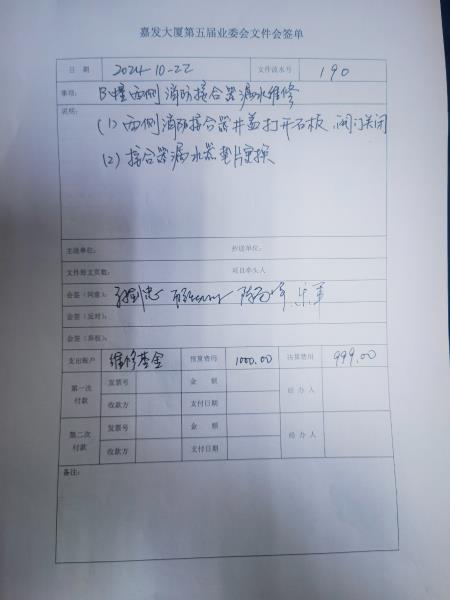 嘉发大厦第五届业委会文件会签单
日 期 2024-10-22 文件流水号 190
事项： B幢西侧消防接合器漏水维修
说明：
(1) 西侧消防接合器井盖打开石板、阀门关闭
(2) 接合器漏水器垫片更换
主送单位： 抄送单位：
文件附文页数： 项目牵头人
会签（同意）：
会签（反对）：
会签（弃权）：
支出账户 维修基金 预算费用 1000.00 决算费用 999.00
第一次付款 发票号 金 额 经 办 人
收款方 支付日期
第二次付款 发票号 金 额 经 办 人
收款方 支付日期
备注：